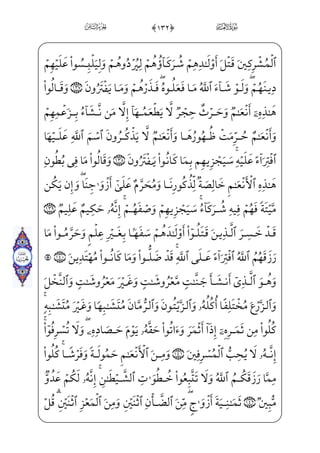 سورة الأنعام ﴿١٣٢﴾ الجزء الثامن
ٱلْمُشْرِكِينَ قَتْلَ أَوْلَٰدِهِمْ شُرَكَآؤُهُمْ لِيُرْدُوهُمْ وَلِيَلْبِسُوا۟ عَلَيْهِمْ
دِينَهُمْ ۖ وَلَوْ شَآءَ ٱللَّهُ مَا فَعَلُوهُ ۖ فَذَرْهُمْ وَمَا يَفْتَرُونَ ١٣٧ وَقَالُوا۟
هَٰذِهِۦٓ أَنْعَٰمٌ وَحَرْثٌ حِجْرٌ لَّا يَطْعَمُهَآ إِلَّا مَن نَّشَآءُ بِزَعْمِهِمْ
وَأَنْعَٰمٌ حُرِّمَتْ ظُهُورُهَا وَأَنْعَٰمٌ لَّا يَذْكُرُونَ ٱسْمَ ٱللَّهِ عَلَيْهَا
ٱفْتِرَآءً عَلَيْهِ ۚ سَيَجْزِيهِم بِمَا كَانُوا۟ يَفْتَرُونَ ١٣٨ وَقَالُوا۟ مَا فِى بُطُونِ
هَٰذِهِ ٱلْأَنْعَٰمِ خَالِصَةٌ لِّذُكُورِنَا وَمُحَرَّمٌ عَلَىٰٓ أَزْوَٰجِنَا ۖ وَإِن يَكُن
مَّيْتَةً فَهُمْ فِيهِ شُرَكَآءُ ۚ سَيَجْزِيهِمْ وَصْفَهُمْ ۚ إِنَّهُۥ حَكِيمٌ عَلِيمٌ ١٣٩
قَدْ خَسِرَ ٱلَّذِينَ قَتَلُوٓا۟ أَوْلَٰدَهُمْ سَفَهًۢا بِغَيْرِ عِلْمٍ وَحَرَّمُوا۟ مَا
رَزَقَهُمُ ٱللَّهُ ٱفْتِرَآءً عَلَى ٱللَّهِ ۚ قَدْ ضَلُّوا۟ وَمَا كَانُوا۟ مُهْتَدِينَ ١٤٠
وَهُوَ ٱلَّذِىٓ أَنشَأَ جَنَّٰتٍ مَّعْرُوشَٰتٍ وَغَيْرَ مَعْرُوشَٰتٍ وَٱلنَّخْلَ
وَٱلزَّرْعَ مُخْتَلِفًا أُكُلُهُۥ وَٱلزَّيْتُونَ وَٱلرُّمَّانَ مُتَشَٰبِهًا وَغَيْرَ مُتَشَٰبِهٍ ۚ
كُلُوا۟ مِن ثَمَرِهِۦٓ إِذَآ أَثْمَرَ وَءَاتُوا۟ حَقَّهُۥ يَوْمَ حَصَادِهِۦ ۖ وَلَا تُسْرِفُوٓا۟ ۚ
إِنَّهُۥ لَا يُحِبُّ ٱلْمُسْرِفِينَ ١٤١ وَمِنَ ٱلْأَنْعَٰمِ حَمُولَةً وَفَرْشًا ۚ كُلُوا۟
مِمَّا رَزَقَكُمُ ٱللَّهُ وَلَا تَتَّبِعُوا۟ خُطُوَٰتِ ٱلشَّيْطَٰنِ ۚ إِنَّهُۥ لَكُمْ عَدُوٌّ
مُّبِينٌ ١٤٢ ثَمَٰنِيَةَ أَزْوَٰجٍ ۖ مِّنَ ٱلضَّأْنِ ٱثْنَيْنِ وَمِنَ ٱلْمَعْزِ ٱثْنَيْنِ ۗ قُلْ